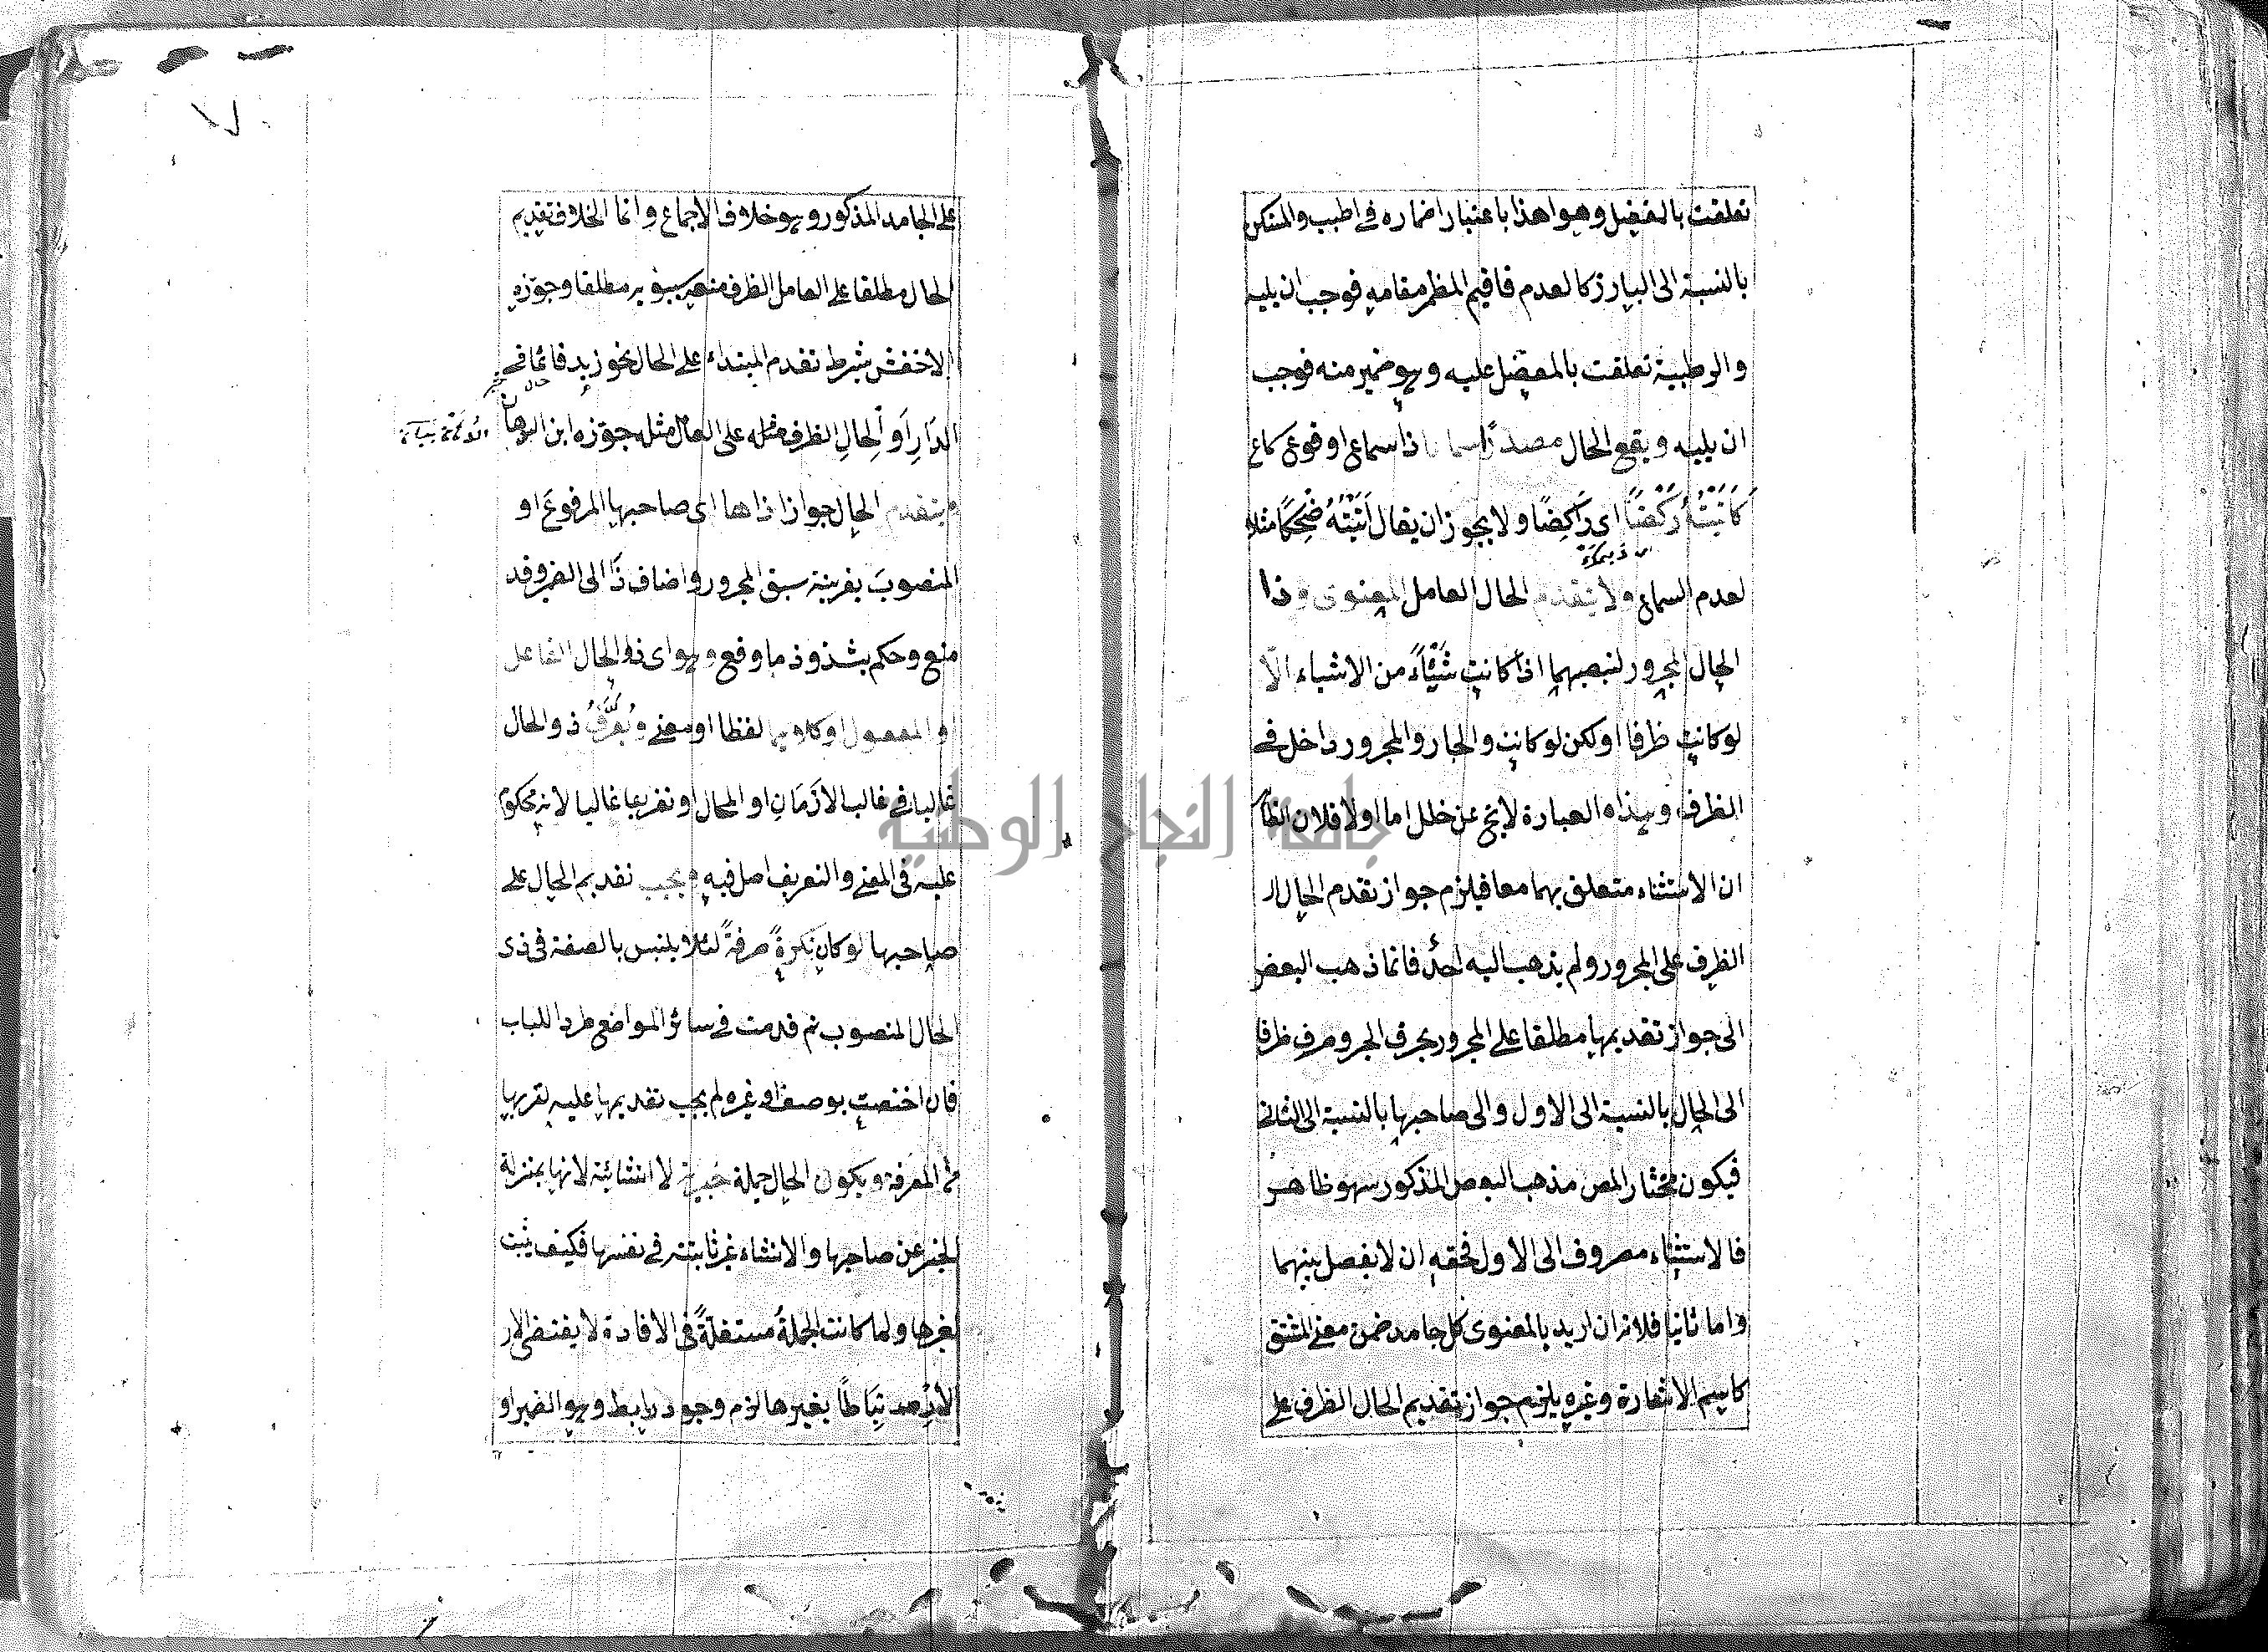 تعلقت بالمفضل وهو هذا باعتبار اضماره في اطيب والمستكن
بالنسبة الى البارز كالعدم فاقيم المظهر مقامه فوجب ان يليه
والرطبية تعلقت بالمفضل عليه وهو ضمير منه فوجب
ان يليه ويقع الحال مصدرًا سماعا ذا سماع او وقوع كاع
كَاَتَيْتُهُ رَكْضًا اى رَاكِضًا ولا يجوز ان يقال اَتَيْتُهُ ضَحِكًا مثلا
لعدم السماع ولا يتقدم الحال العامل المعنوى وذا
الحال المجرور لنصبهما اذا كانت شَيْئًا من الاشياء الّا
لو كانت ظرفا او لكن لو كانت والجار والمجرور داخل في
الظرف وهذه العبارة لا يخ عن خلل اما اولا فلان الظا
ان الاستثناء متعلق بهما معا فيلزم جواز تقدم الحال ال
الظرف على المجرور ولم يذهب اليه احدٌ فانما ذهب البعض
الى جواز تقديمها مطلقا على المجرور بحرف الجر وصرف ظرفا
الى الحال بالنسبة الى الاول والى صاحبها بالنسبة الى الثانى
فيكون مختار المص مذهب البعض المذكور سهو ظاهر
فالاستثناء مصروف الى الاول فحقه ان لا يفصل بينهما
واما ثانيا فلانه ان اريد بالمعنوى كل جامد ضمن معنى المشتق
كاسم الاشارة وغيره يلزم جواز تقديم الحال الظرف على
على الجامد المذكور وهو خلاف الاجماع وانما الخلاف تقديم
الحال مطلقا على العامل الظرف منعه سيبويه مطلقا وجوّزه
الاخفش بشرط تقدم المبتداء على الحال نحو زيد قائما في
الدَارِ اَو الحالِ الظرف مثله على العامل مثله جوّزه ابن البرهان
ويتقدم الحال جوازا ذاها اى صاحبها المرفوعَ او
المنصوبَ بقرينة سبق المجرور واضاف ذَا الى الضمير وقد
منع وحكم بشذوذ ما وقع وهو اى ذو الحال الفاعل
او المفعول او كلاهما لفظا او معنى ويُعَرَّفُ ذو الحال
غالبا في غالب الازمَانِ او المحال او تعريفا غالبا لانه محكوم
عليه في المعنى والتعريف اصل فيه ويجب تقديم الحال على
صاحبها لو كان نَكِرَةً صرفةً لئلا يلتبس بالصفة في ذى
الحال المنصوب ثم قدمت في سائر المواضع طردا للباب
فان اختصت بوصف او غيره لم يجب تقديمها عليه لقربها
من المعرفة ويكون الحال جملة خبرية لا انشائية لانها بمنزلة
الخبر عن صاحبها والانشاء غير ثابتة في نفسها فكيف يثبت
لغيرها ولما كانت الجملةُ مستقلةً في الافادة لا يقتضى الار
الارتِبَاطًا بغيرها لزم وجود رابط وهو الضمير او
جامعة النجاح الوطنية